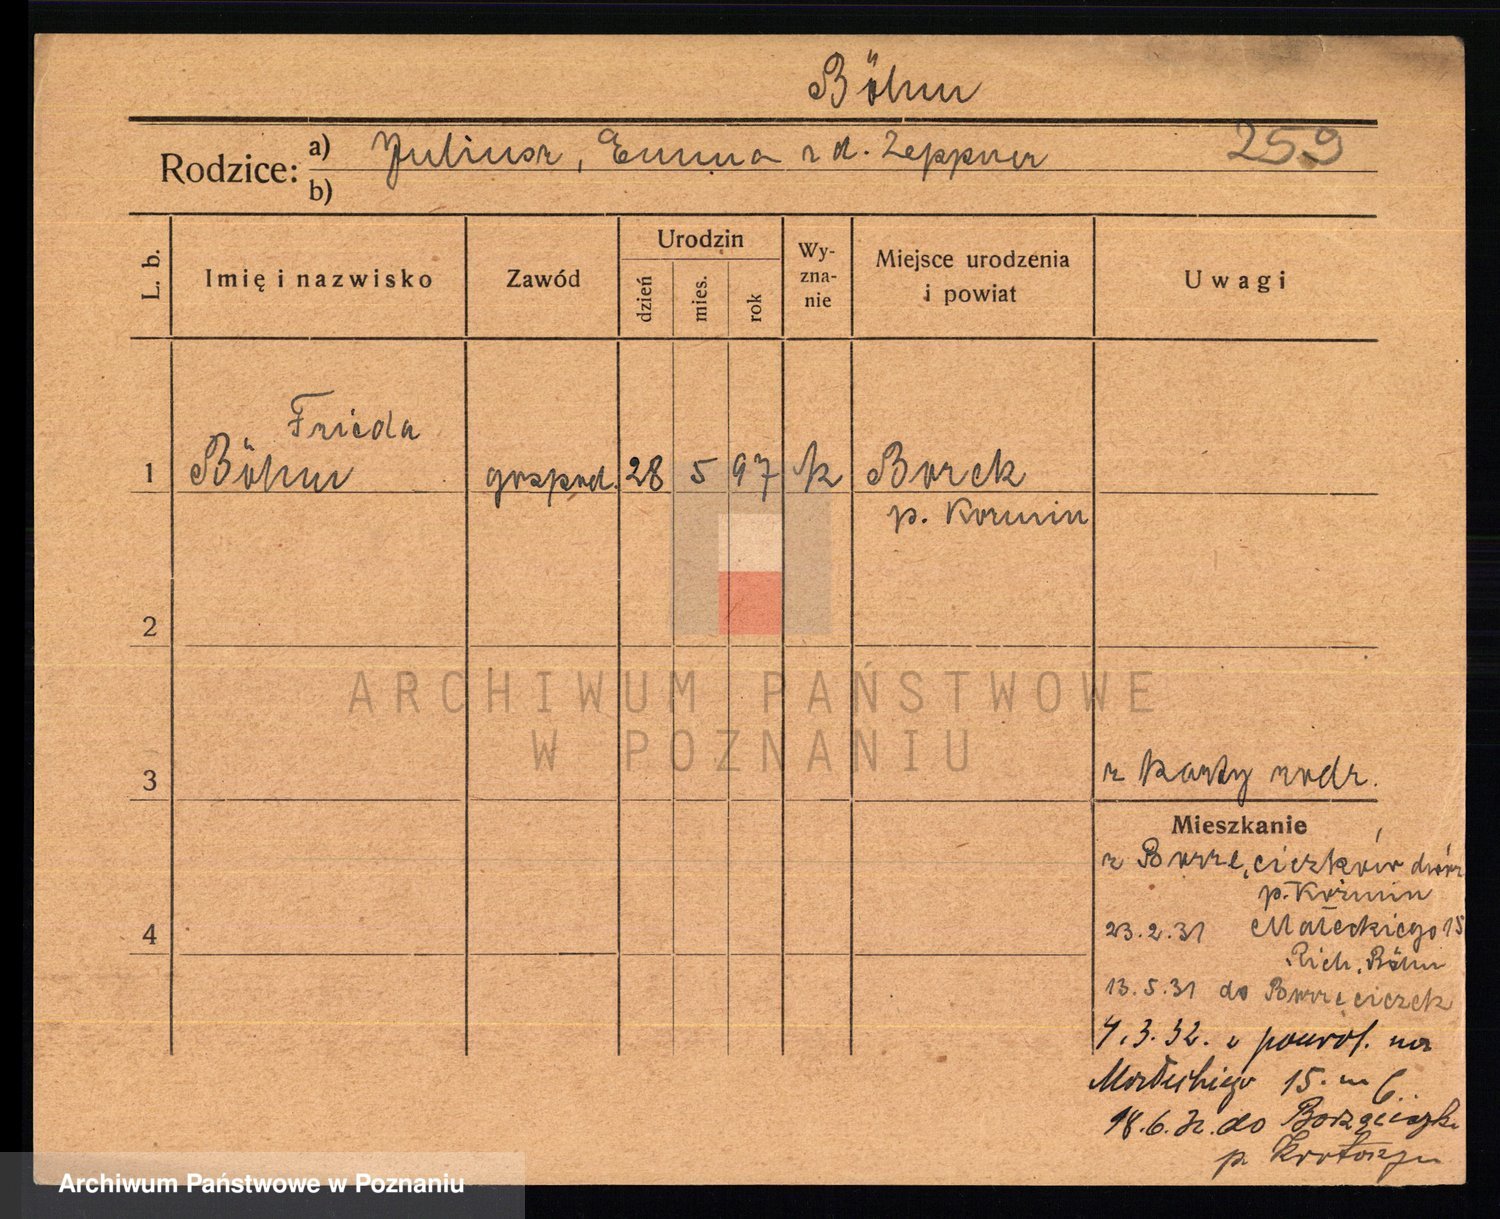 Böhm
Rodzice:
a) Juliusz, Emma z d. Zeppner
259
b)
L. b.
Imię i nazwisko
Zawód
Urodzin
dzień
mies.
rok
Wy-
zna-
nie
Miejsce urodzenia
i powiat
Uwagi
Frieda
1 Böhm gospod. 28 5 97 k Borek
p. Kozmin
2
ARCHIWUM PAŃSTWOWE
W POZNANIU
3
z karty rodz.
Mieszkanie
z Borzęciczków dwór
p. Koźmin
4
23.2.31 Małeckiego 15
Rich. Böhm
13.5.31 do Borzęciczek
4.3.32. z powrot. na
Małeckiego 15. m 6.
18.6.32. do Borzęciczk
p. Krotoszyn
Archiwum Państwowe w Poznaniu